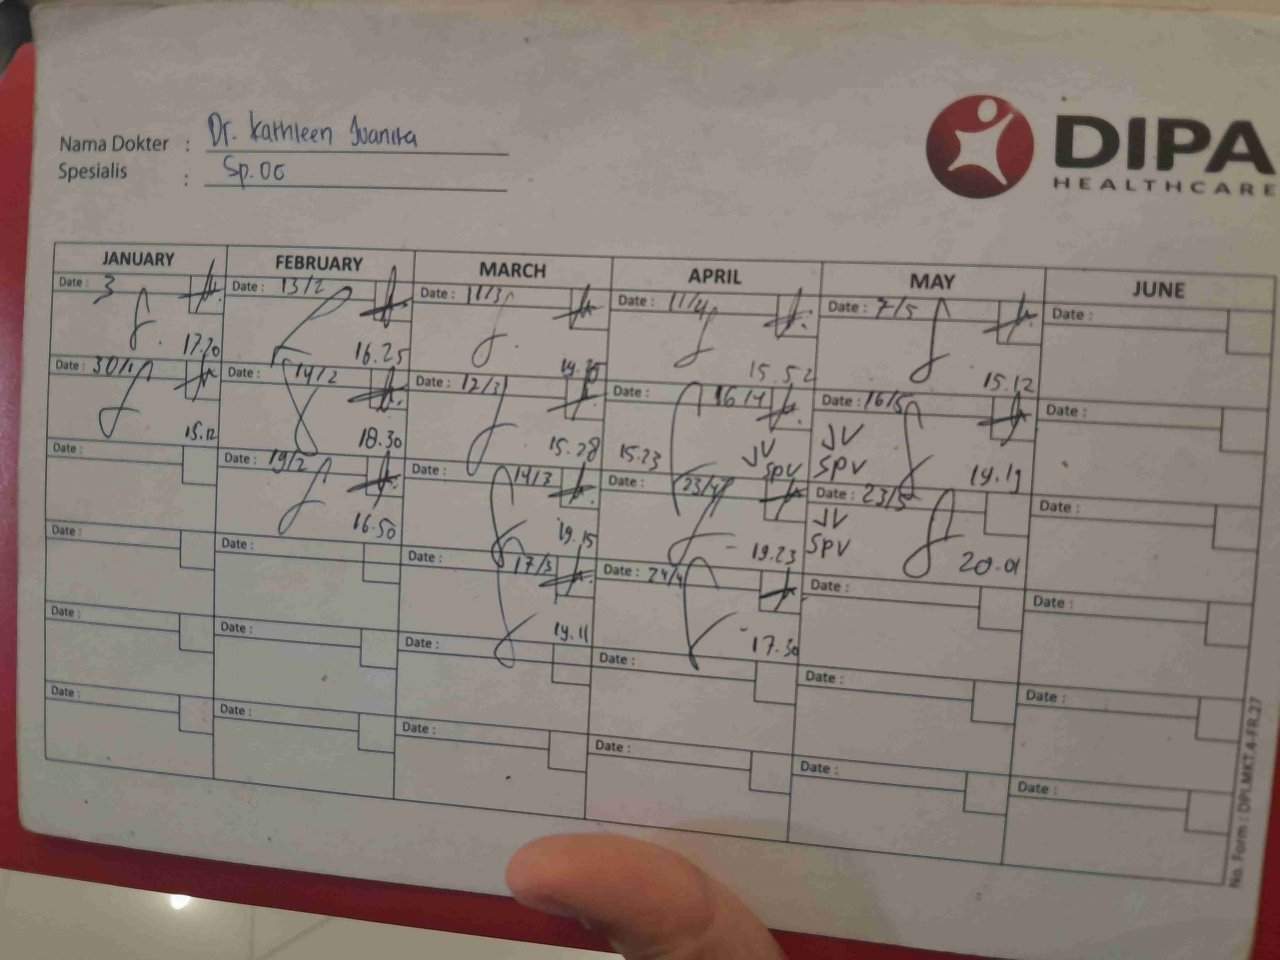 DIPA
HEALTHCARE
Nama Dokter : Dr. Kathleen Juanita
Spesialis : Sp.OG
JANUARY FEBRUARY MARCH APRIL MAY JUNE
Date : 3 Date : 13/2 Date : 11/3 Date : 11/4 Date : 7/5 Date :
17.20 16.25 15.52 15.12
Date : 30/1 Date : 14/2 Date : 12/3 16/4 Date : 16/5 Date :
15.12 18.30 15.28 15.23 JV SPV JV SPV 19.19
Date : Date : 19/2 Date : 14/3 Date : 23/4 Date : 23/5 Date :
16.50 19.15 19.23 JV SPV 20.01
Date : Date : 17/3 Date : 24/4 Date : Date :
19.11 17.30
Date : Date : Date : Date : Date : Date :
Date : Date : Date : Date : Date : Date :
No. Form : DPLMKT.4-FR.27